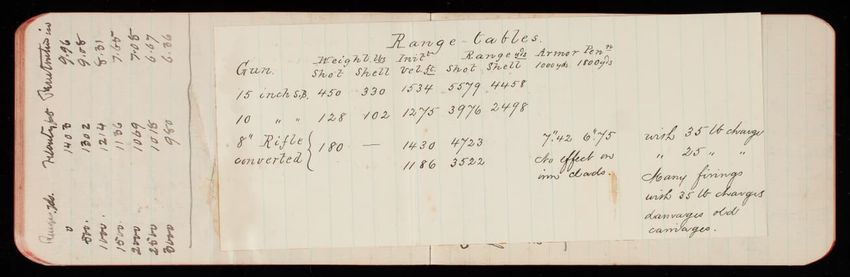 Range-tables.
Gun. Weight. lbs Shot Shell Initl Vel. ft. Range yds Shot Shell Armor Penn 1000yds 1800yds
15 inch S.B. 450 330 1534 5579 4458
10 " " 128 102 1275 3976 2498
8" Rifle converted 180 — 1430 4723 7".42 6".75 with 35 lb charge
1186 3522 No effect on iron clads. " 25 " "
Many firings
with 35 lb charges
damages old
carriages.
Range, yds. Penetration in
0 1403 9.96
500. 1302 9.08
1000. 1214 8.31
1500. 1136 7.65
2000 1069 7.08
2500 1015 6.67
3000 980 6.36